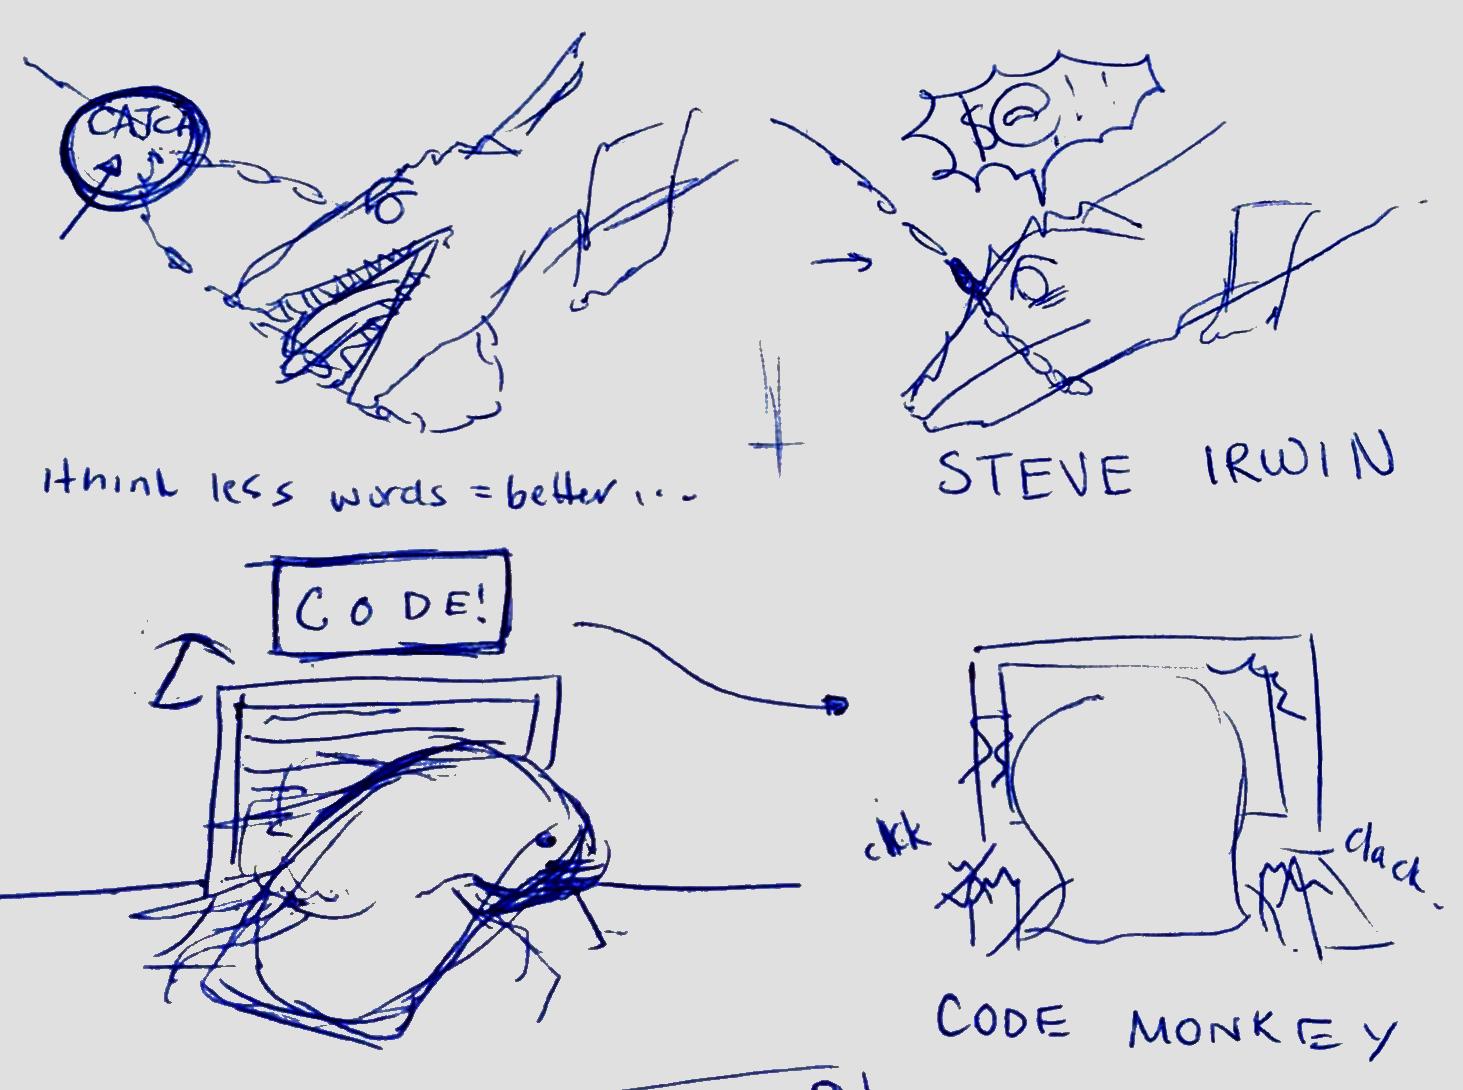 CAJCA
$@!!
ithink less words = better...
STEVE IRWIN
CODE!
click
clack
CODE MONKEY